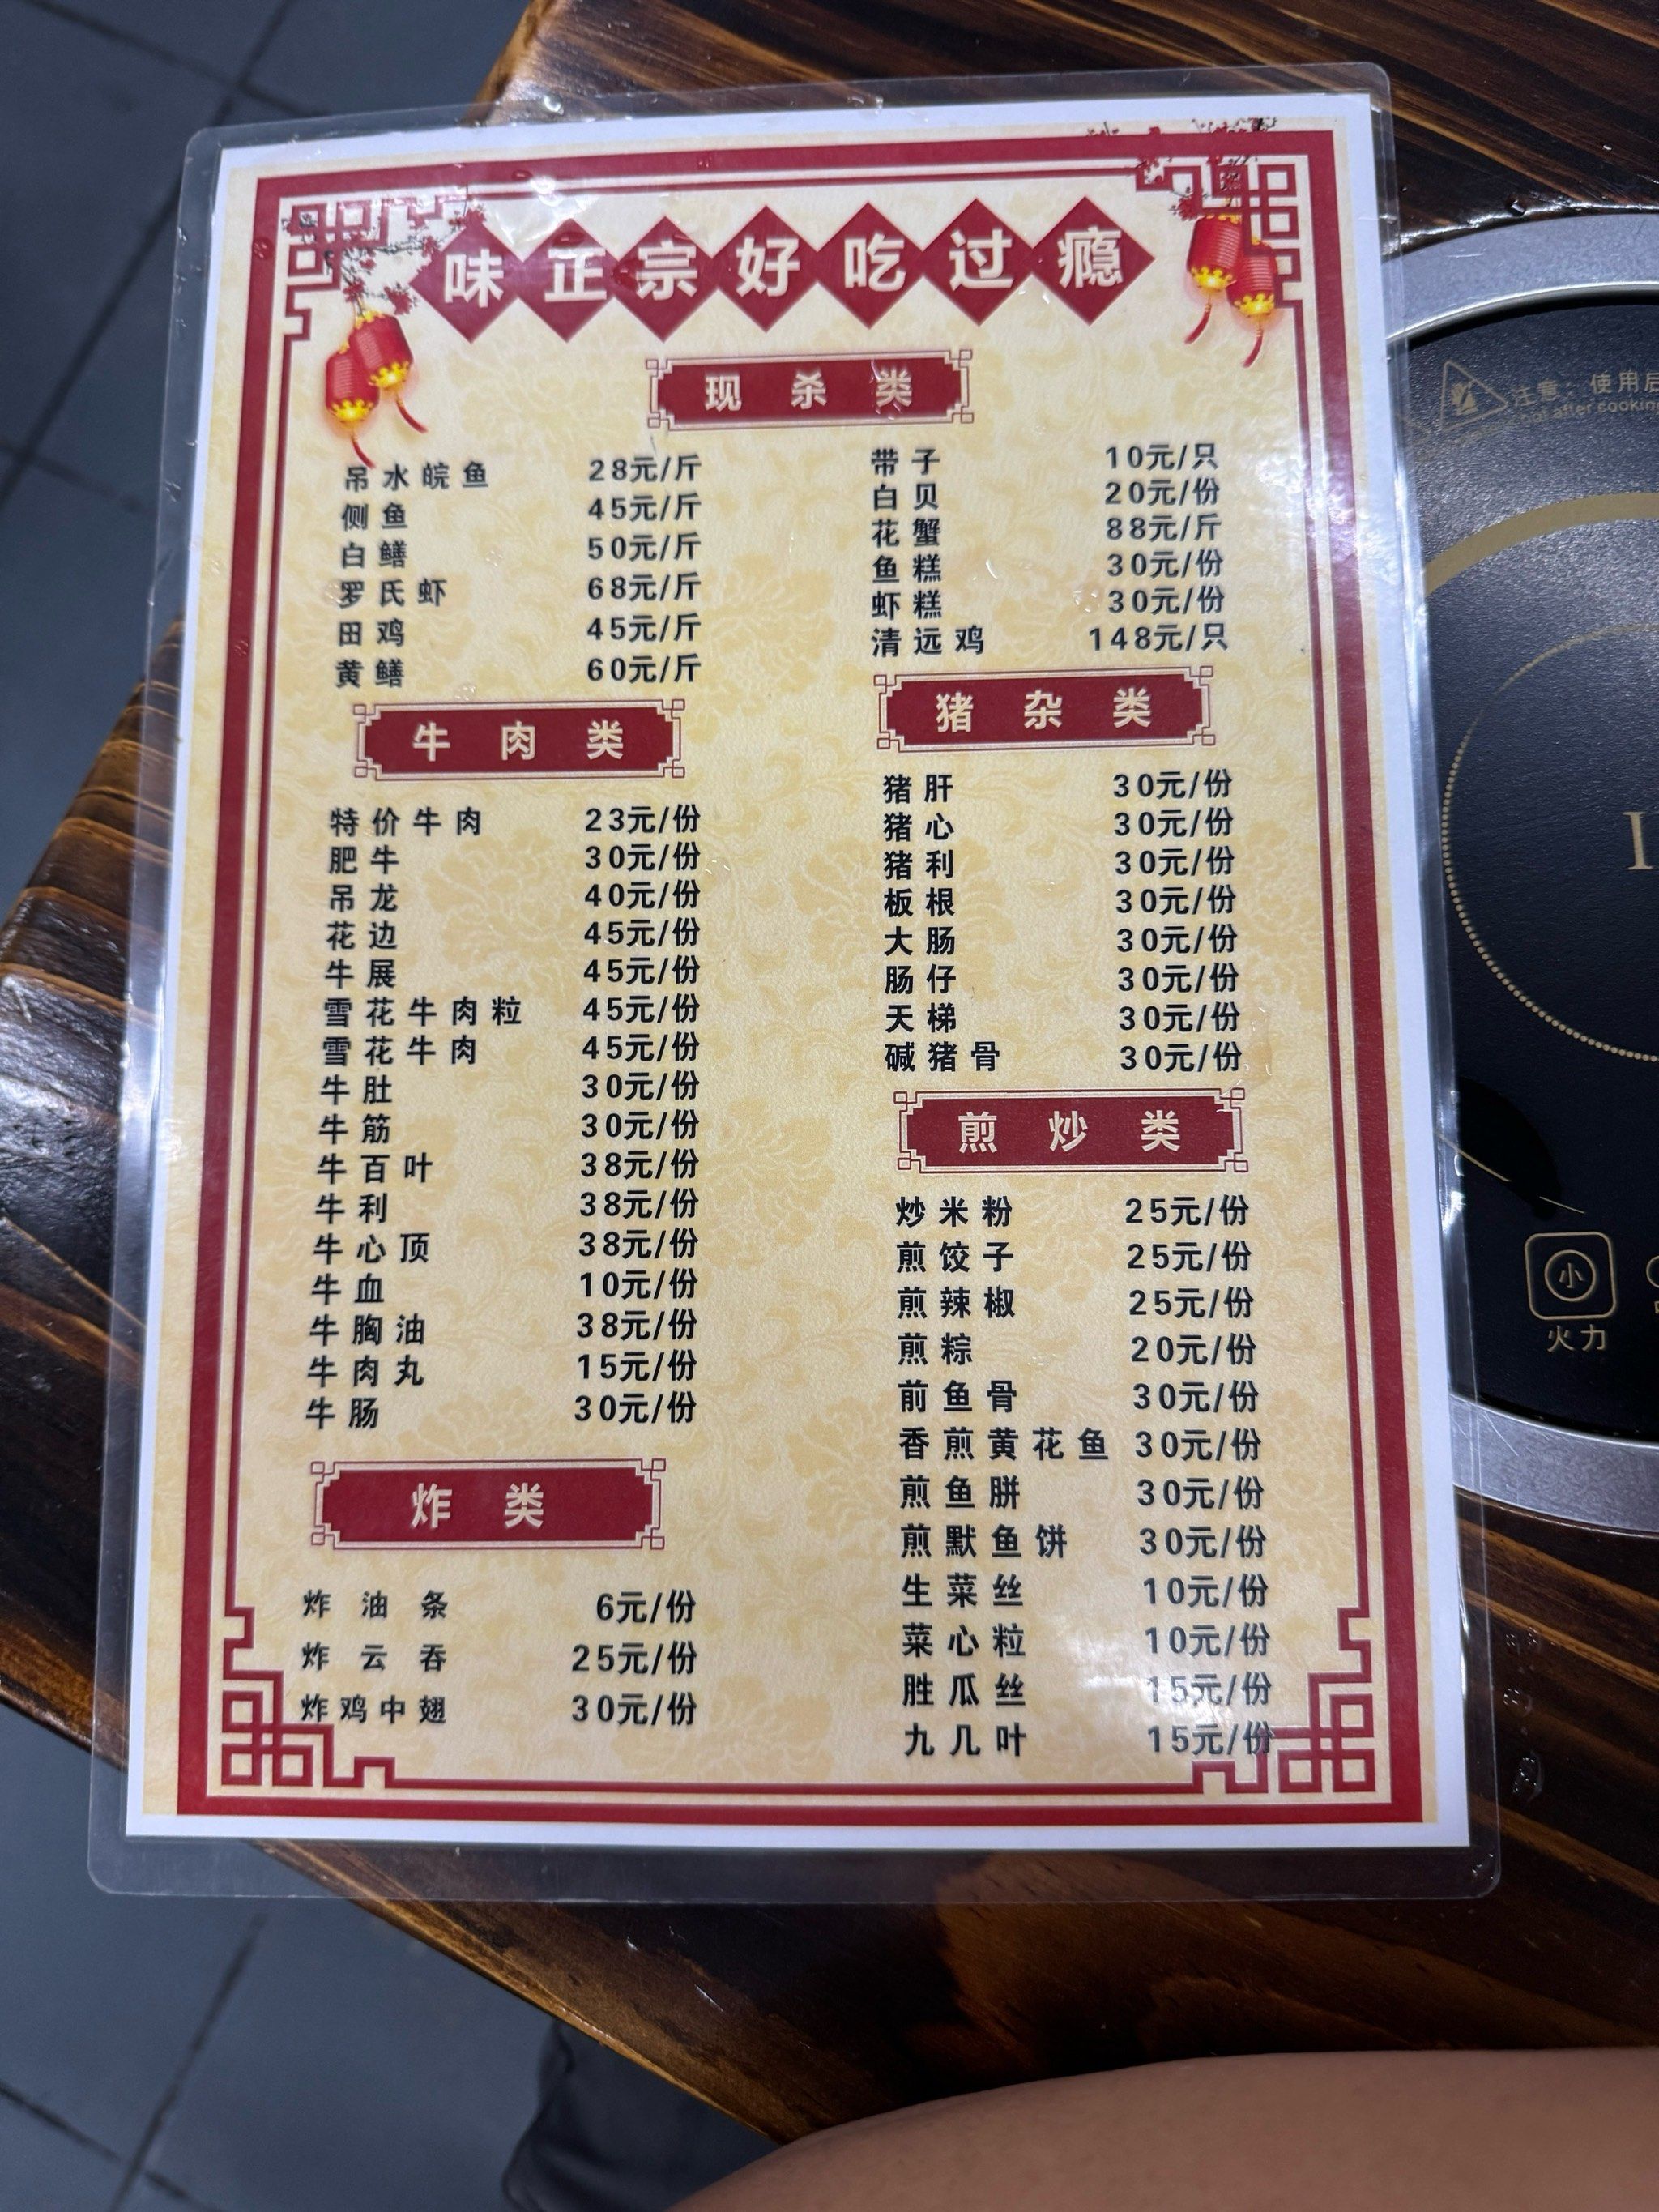 味正宗好吃过瘾
现杀类
吊水皖鱼 28元/斤
侧鱼 45元/斤
白鳝 50元/斤
罗氏虾 68元/斤
田鸡 45元/斤
黄鳝 60元/斤
带子 10元/只
白贝 20元/份
花蟹 88元/斤
鱼糕 30元/份
虾糕 30元/份
清远鸡 148元/只
牛肉类
特价牛肉 23元/份
肥牛 30元/份
吊龙 40元/份
花边 45元/份
牛展 45元/份
雪花牛肉粒 45元/份
雪花牛肉 45元/份
牛肚 30元/份
牛筋 30元/份
牛百叶 38元/份
牛利 38元/份
牛心顶 38元/份
牛血 10元/份
牛胸油 38元/份
牛肉丸 15元/份
牛肠 30元/份
炸类
炸油条 6元/份
炸云吞 25元/份
炸鸡中翅 30元/份
猪杂类
猪肝 30元/份
猪心 30元/份
猪利 30元/份
板根 30元/份
大肠 30元/份
肠仔 30元/份
天梯 30元/份
碱猪骨 30元/份
煎炒类
炒米粉 25元/份
煎饺子 25元/份
煎辣椒 25元/份
煎粽 20元/份
前鱼骨 30元/份
香煎黄花鱼 30元/份
煎鱼胼 30元/份
煎默鱼饼 30元/份
生菜丝 10元/份
菜心粒 10元/份
胜瓜丝 15元/份
九几叶 15元/份
注意：使用后
hot after cooking
小
火力